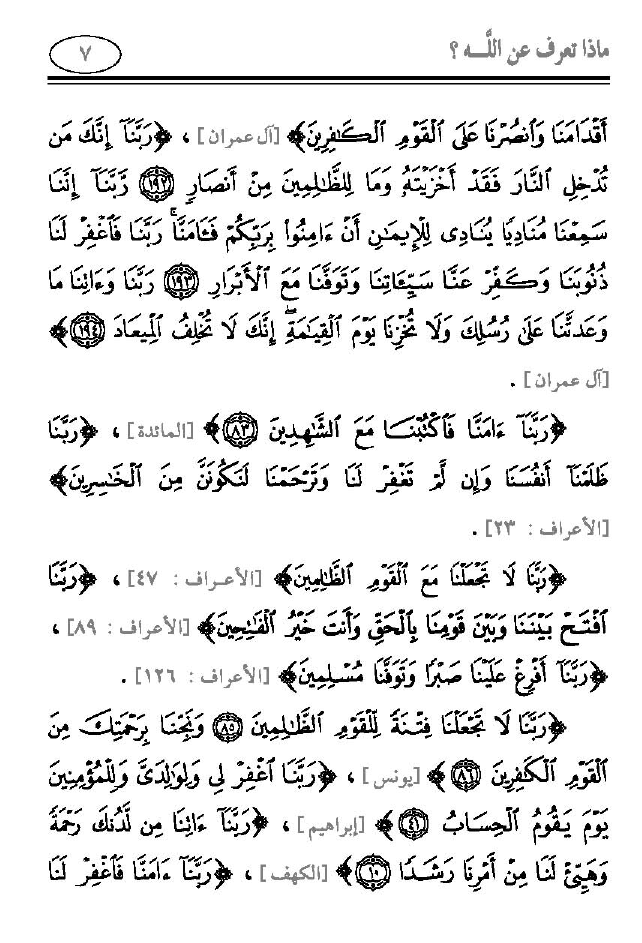 ماذا تعرف عن اللَّـه ؟ ٧
أَقْدَامَنَا وَٱنصُرْنَا عَلَى ٱلْقَوْمِ ٱلْكَٰفِرِينَ﴾ [آل عمران] ، ﴿رَبَّنَآ إِنَّكَ مَن
تُدْخِلِ ٱلنَّارَ فَقَدْ أَخْزَيْتَهُۥ وَمَا لِلظَّٰلِمِينَ مِنْ أَنصَارٍ ١٩٢ رَّبَّنَآ إِنَّنَا
سَمِعْنَا مُنَادِيًا يُنَادِى لِلْإِيمَٰنِ أَنْ ءَامِنُوا۟ بِرَبِّكُمْ فَـَٔامَنَّا ۚ رَبَّنَا فَٱغْفِرْ لَنَا
ذُنُوبَنَا وَكَفِّرْ عَنَّا سَيِّـَٔاتِنَا وَتَوَفَّنَا مَعَ ٱلْأَبْرَارِ ١٩٣ رَبَّنَا وَءَاتِنَا مَا
وَعَدتَّنَا عَلَىٰ رُسُلِكَ وَلَا تُخْزِنَا يَوْمَ ٱلْقِيَٰمَةِ ۗ إِنَّكَ لَا تُخْلِفُ ٱلْمِيعَادَ ١٩٤﴾
[آل عمران] .
﴿رَبَّنَآ ءَامَنَّا فَٱكْتُبْنَا مَعَ ٱلشَّٰهِدِينَ ٨٣﴾ [المائدة] ، ﴿رَبَّنَا
ظَلَمْنَآ أَنفُسَنَا وَإِن لَّمْ تَغْفِرْ لَنَا وَتَرْحَمْنَا لَنَكُونَنَّ مِنَ ٱلْخَٰسِرِينَ﴾
[الأعراف : ٢٣] .
﴿رَبَّنَا لَا تَجْعَلْنَا مَعَ ٱلْقَوْمِ ٱلظَّٰلِمِينَ﴾ [الأعراف : ٤٧] ، ﴿رَبَّنَا
ٱفْتَحْ بَيْنَنَا وَبَيْنَ قَوْمِنَا بِٱلْحَقِّ وَأَنتَ خَيْرُ ٱلْفَٰتِحِينَ﴾ [الأعراف : ٨٩] ،
﴿رَبَّنَآ أَفْرِغْ عَلَيْنَا صَبْرًا وَتَوَفَّنَا مُسْلِمِينَ﴾ [الأعراف : ١٢٦] .
﴿رَبَّنَا لَا تَجْعَلْنَا فِتْنَةً لِّلْقَوْمِ ٱلظَّٰلِمِينَ ٨٥ وَنَجِّنَا بِرَحْمَتِكَ مِنَ
ٱلْقَوْمِ ٱلْكَٰفِرِينَ ٨٦﴾ [يونس] ، ﴿رَبَّنَا ٱغْفِرْ لِى وَلِوَٰلِدَىَّ وَلِلْمُؤْمِنِينَ
يَوْمَ يَقُومُ ٱلْحِسَابُ ٤١﴾ [إبراهيم] ، ﴿رَبَّنَآ ءَاتِنَا مِن لَّدُنكَ رَحْمَةً
وَهَيِّئْ لَنَا مِنْ أَمْرِنَا رَشَدًا ١٠﴾ [الكهف] ، ﴿رَبَّنَآ ءَامَنَّا فَٱغْفِرْ لَنَا